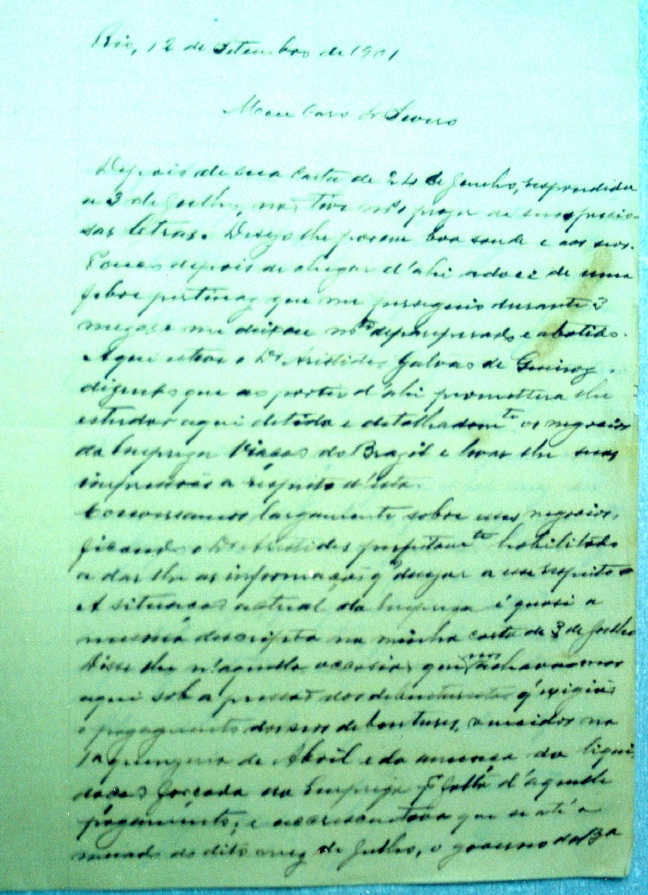 Rio, 12 de Setembro de 1901
Meu Caro Dr Severo
Depois de sua Carta de 24 de Junho, respondida
a 3 de Julho, não tive mais prazer de suas precio-
sas letras. Desejo lhe porem boa saude e aos seus.
Pouco depois de chegar d'ahi adoeci de uma
febre pertinaz que me perseguio durante 3
mezes e me deixou mto depauperado e abatido.
Aqui esteve o Dr Aristides Galvão de Queiroz
dizendo que ao partir d'ahi promettera lhe
estudar aqui detida e detalhadamte os negocios
da Empreza Viação do Brazil e levar lhe suas
impressões a respeito d'esta
Conversamos largamente sobre esses negocios,
ficando o Dr Aristides perfeitamte habilitado
a dar lhe as informações q' desejar a esse respeito
A situação actual da Empreza é quasi a
mesma descripta na minha carta de 3 de Julho
Disse lhe n'aquella occasião que nos achavamos
aqui sob a pressão dos debenturistas q' exigião
o pagamento dos seus debentures, vencidos na
1a quinzena de Abril e da ameaça da liqui-
dação forçada da Empreza pr falta d'aquelle
pagamento; e accrescentava que se até a
meado do dito mez de Julho, o governo da Ba